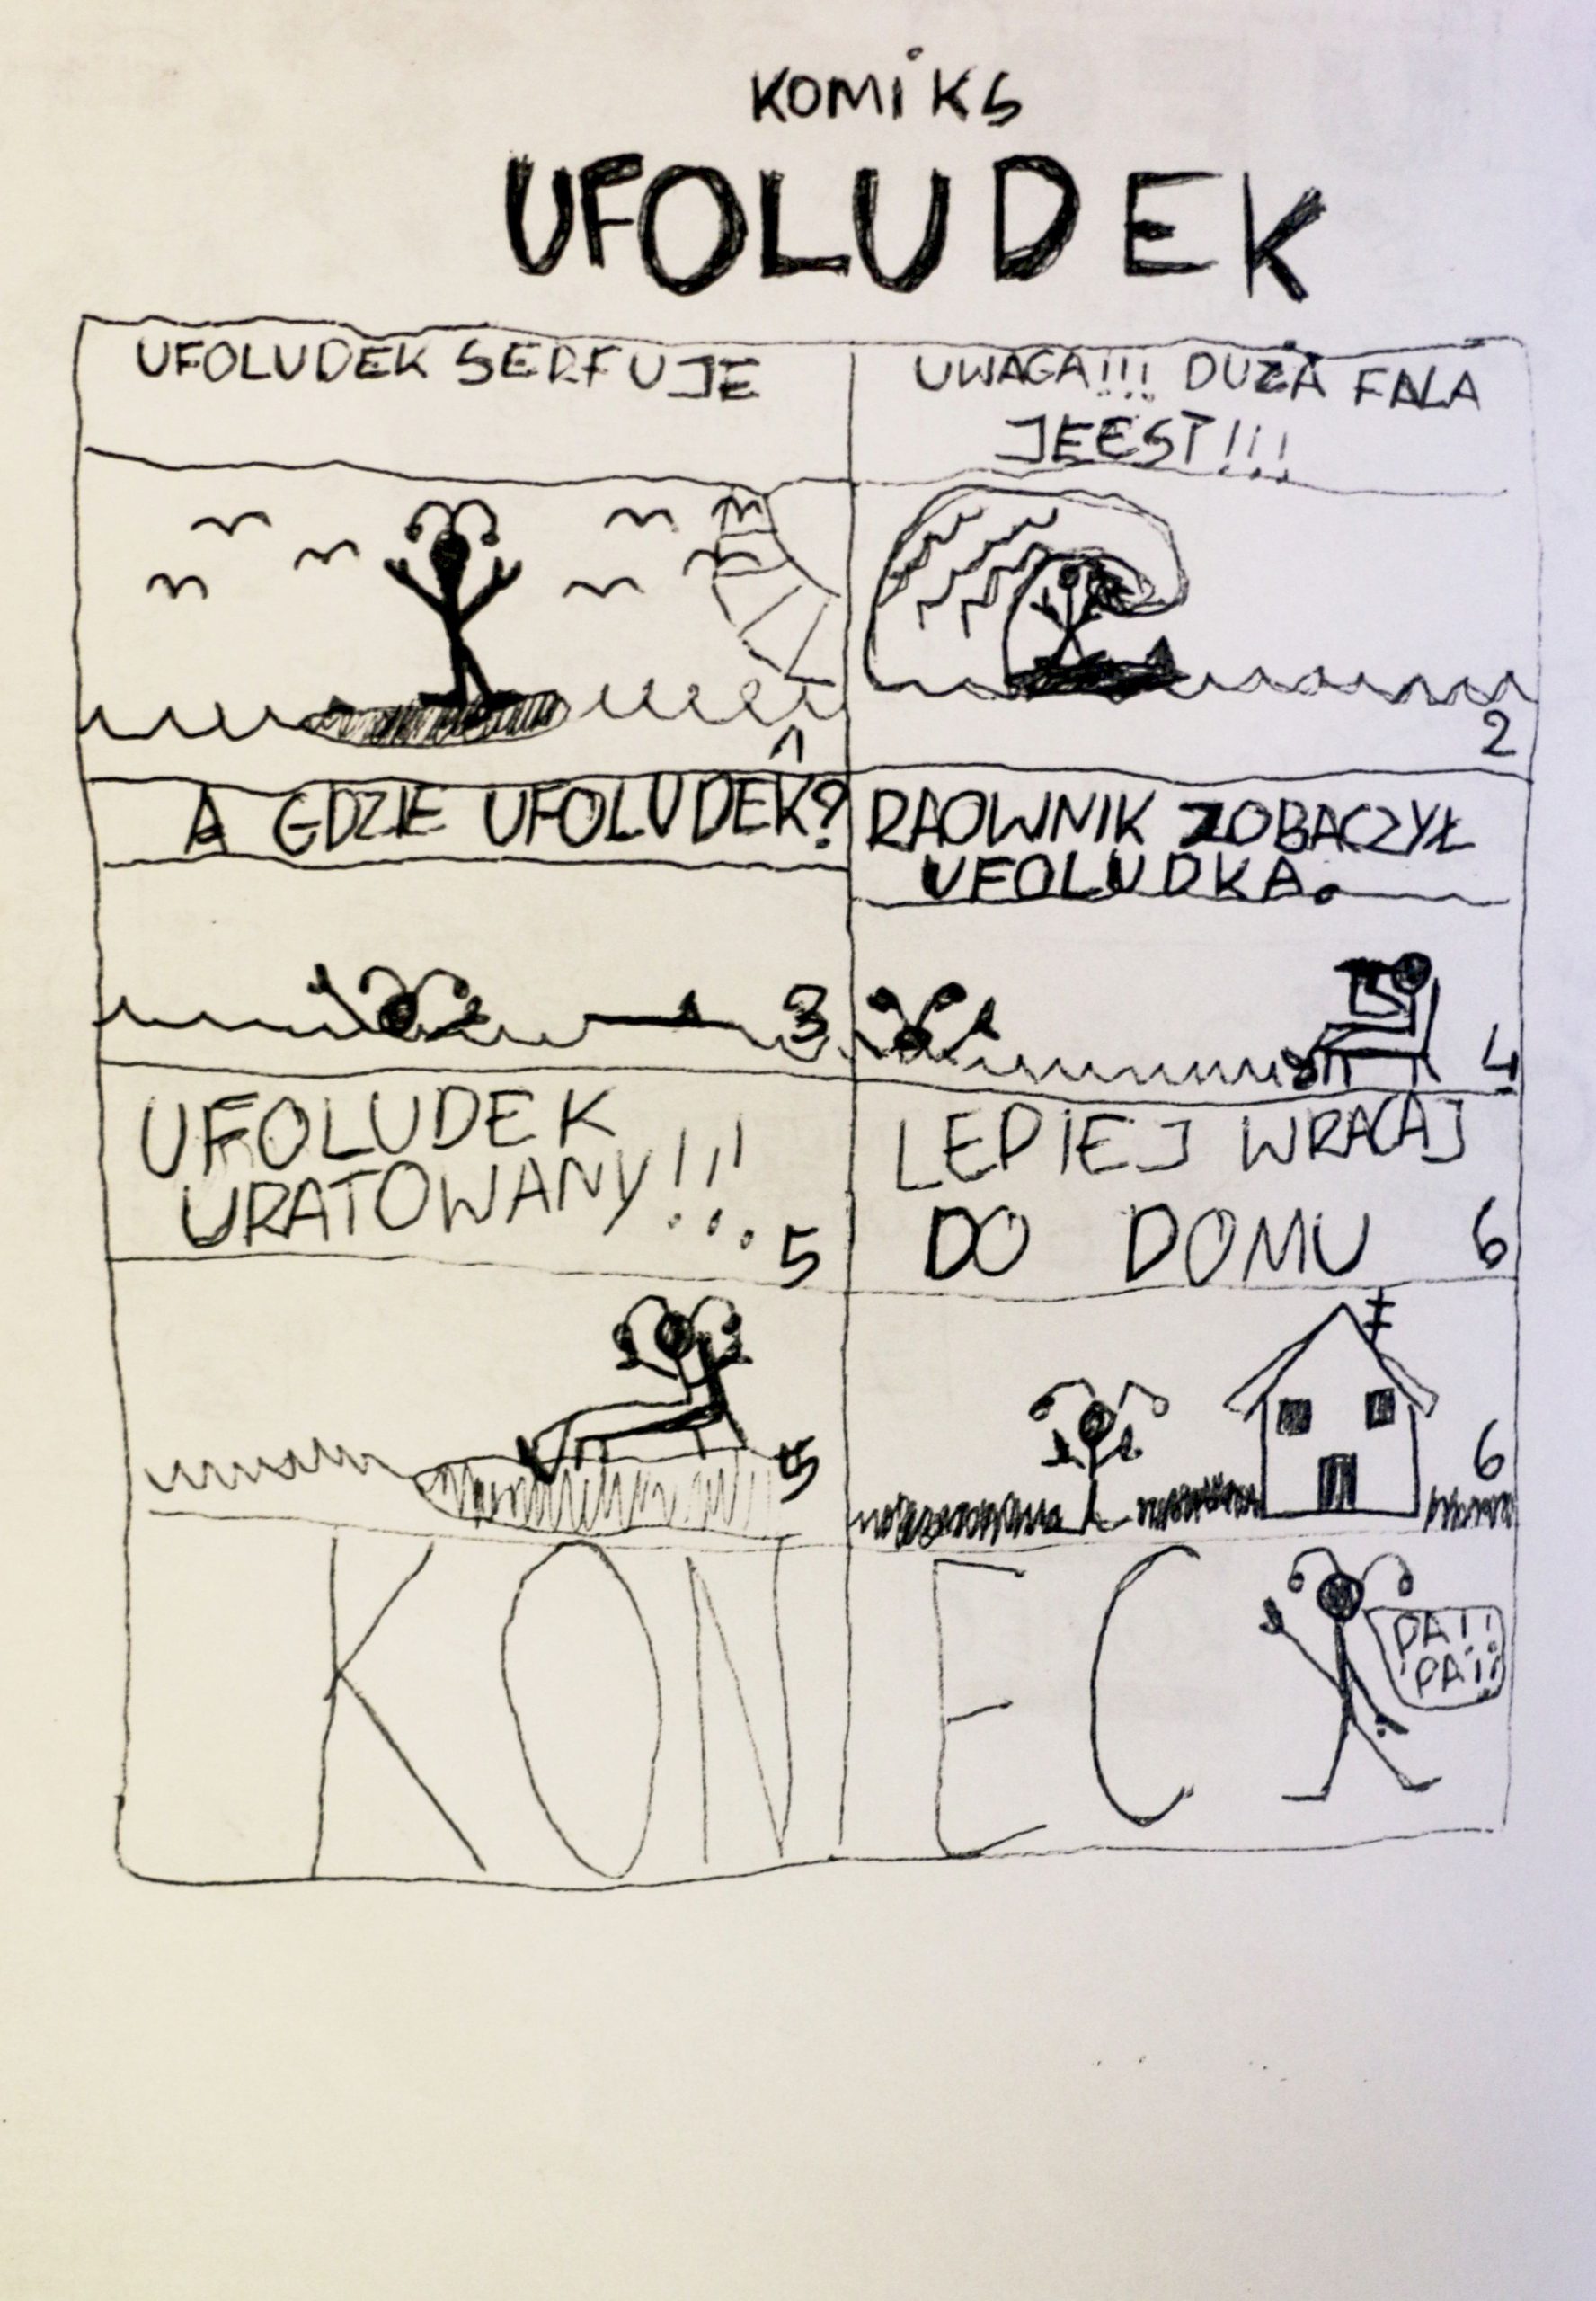 KOMiKS
UFOLUDEK
UFOLUDEK SERFUJE
UWAGA!!! DUŻA FALA
JEEST!!!
1
2
A GDZIE UFOLUDEK?
RAOWNIK ZOBACZYŁ
UFOLUDKA.
3
4
UFOLUDEK
URATOWANY!!!
5
LEPIEJ WRACAJ
DO DOMU 6
5
6
KONIEC
PA!!
PA!!